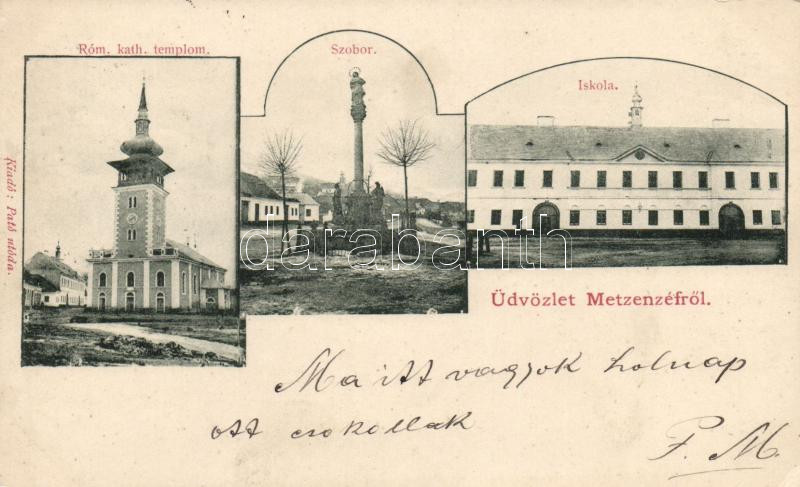 Róm. kath. templom.
Szobor.
Iskola.
Kiadó: Pató utóda.
darabanth
Üdvözlet Metzenzéfről.
Ma itt vagyok holnap
ott csokollak
P. M.